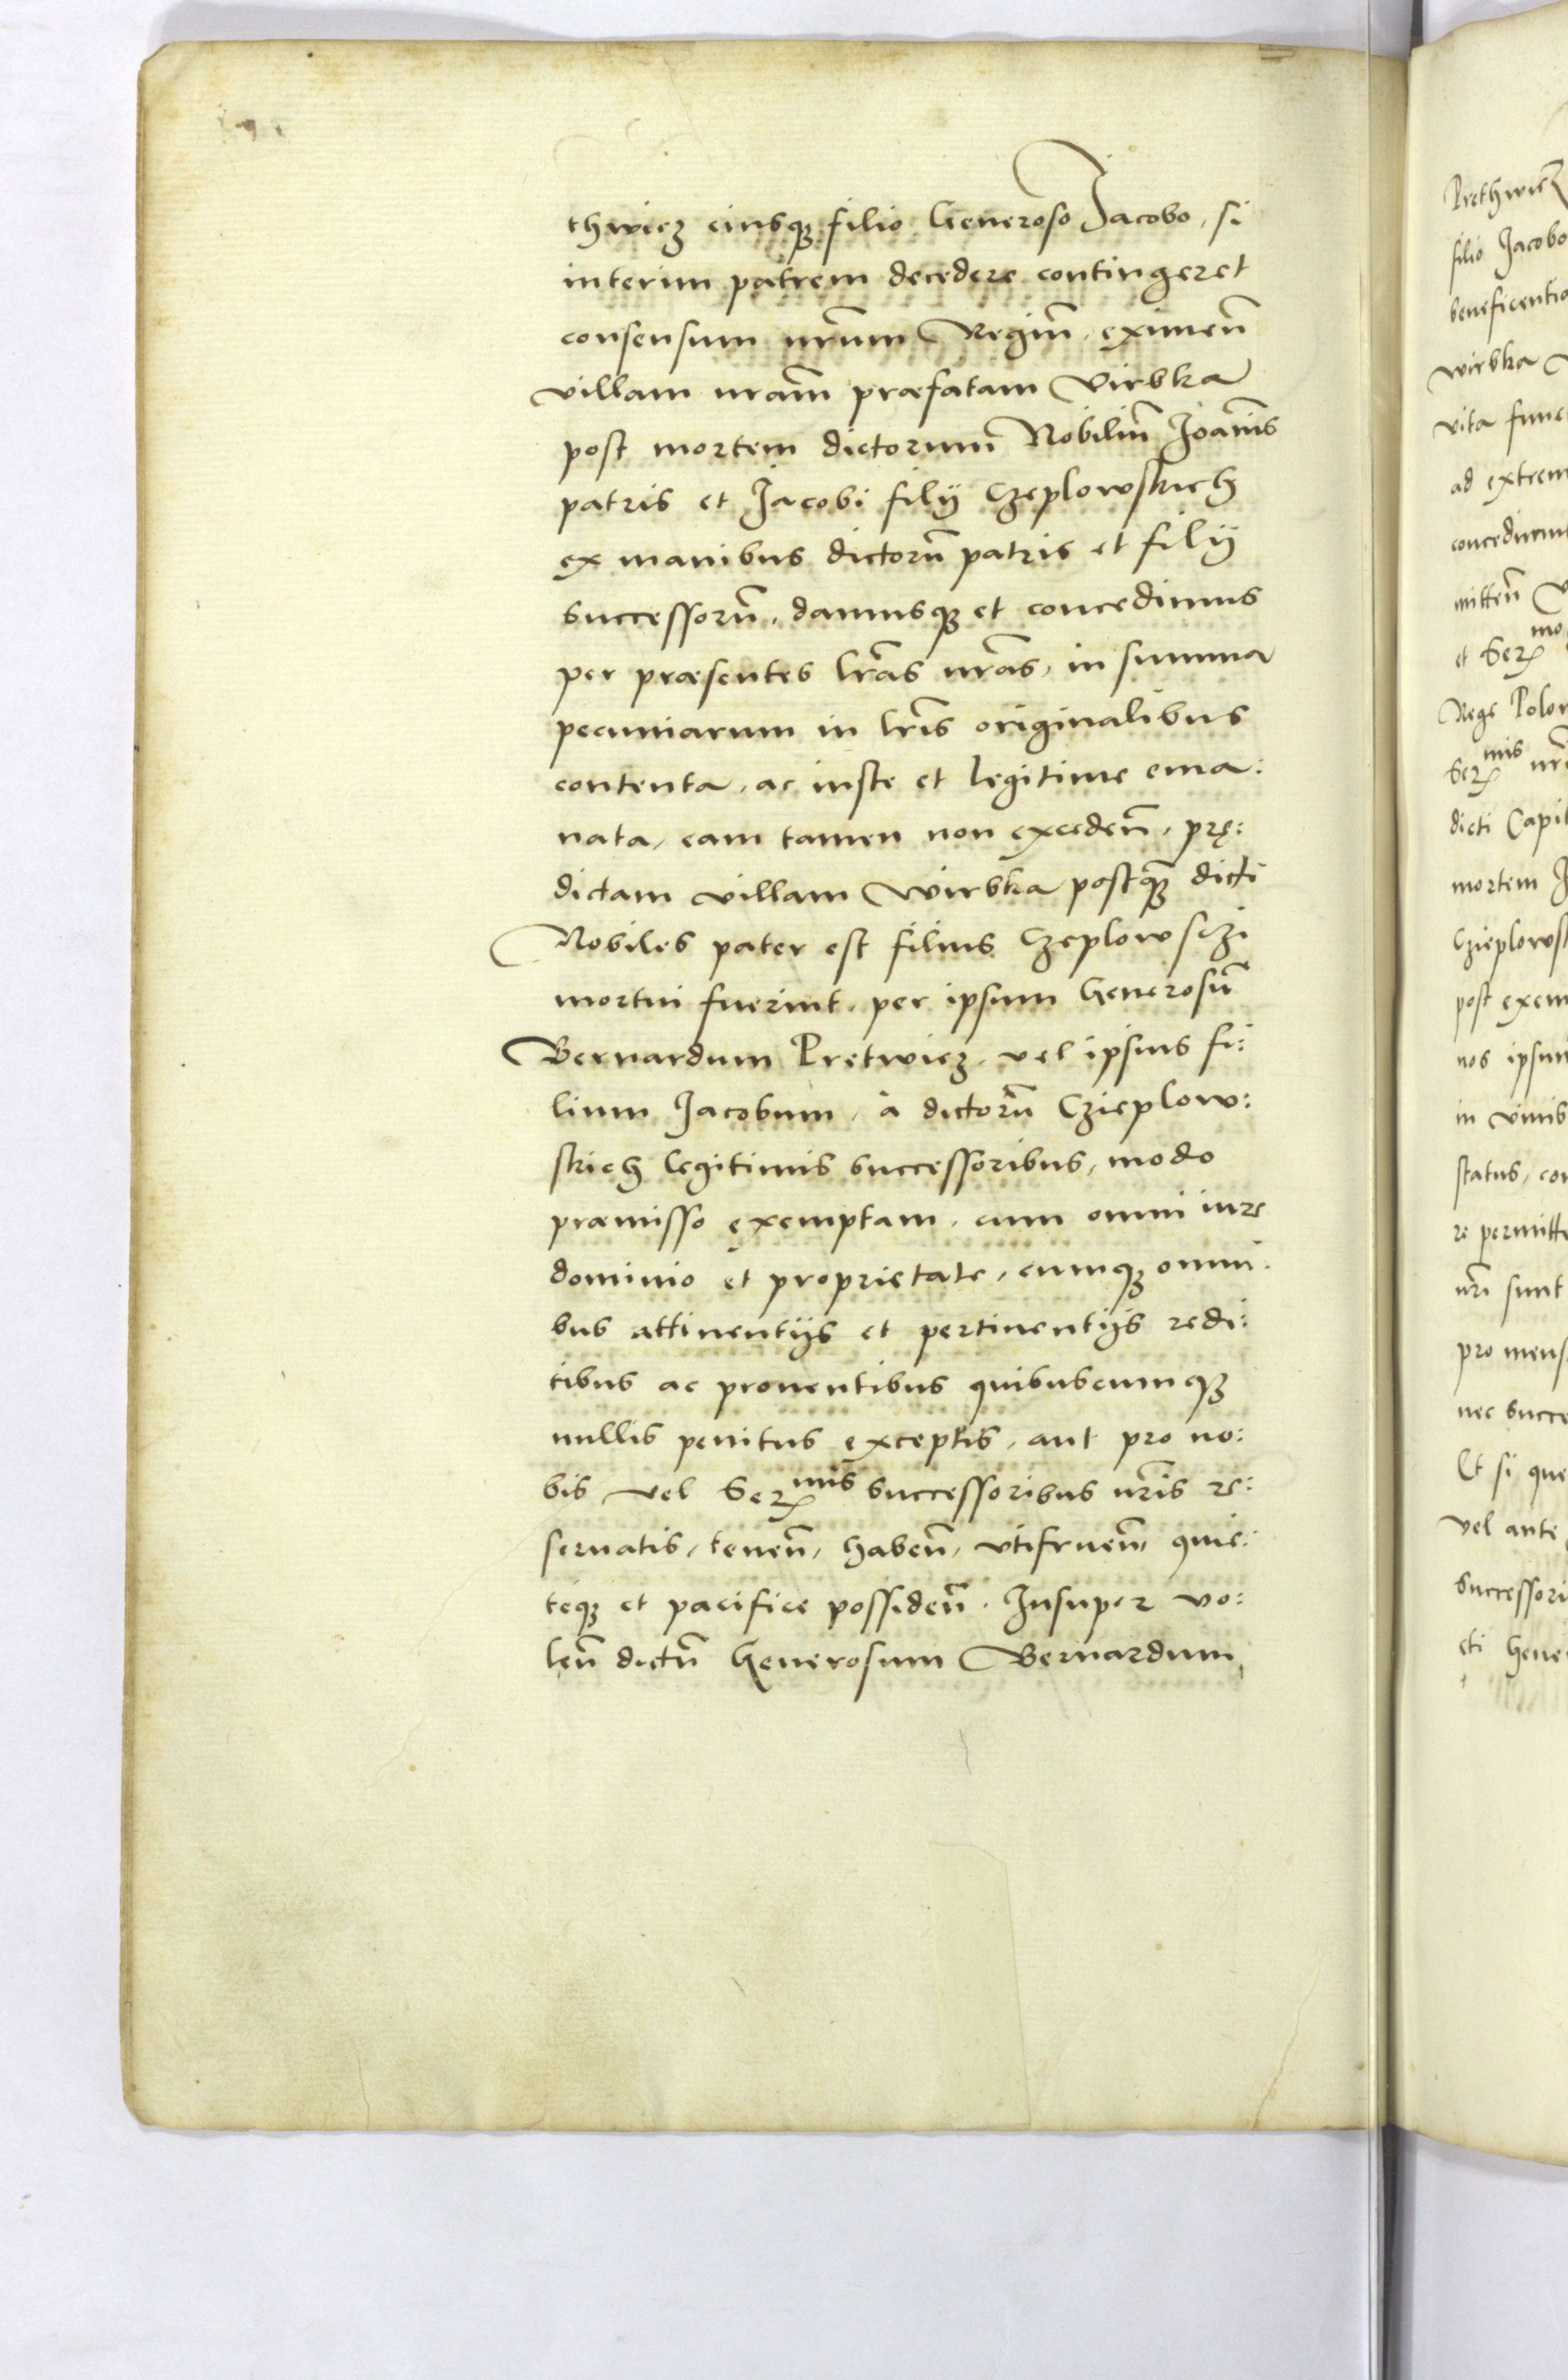 thwicz eiusq₃ filio Generoso Jacobo, si
interim patrem decedere contingeret
consensum nr̃um Regiũ, eximeñ
villam nrãm præfatam Virbka
post mortem dictorum Nobiliũ Joañis
patris et Jacobi filij Czeplowskich
ex manibus dictorũ patris et filij
successorũ, damusq₃ et concedimus
per præsentes lrãs nrãs, in summa
pecuniarum in lrĩs originalibus
contenta, ac iuste et legitime ema:
nata, eam tamen non excedeñ, prę:
dictam villam Wirbka postq₃ dicti
Nobiles pater est filius Czeplowsczi
mortui fuerint, per ipsum Generosũ
Bernardum Pretwicz, vel ipsius fi:
lium Jacobum, à dictorũ Czieplow:
skich legitimis successoribus, modo
præmisso exemptam, cum omni iure
dominio et proprietate, cumq₃ omni:
bus attinentijs et pertinentijs redi:
tibus ac prouentibus quibuscumq₃
nullis penitus exceptis, aut pro no:
bis vel Ser^mis successoribus nrĩs re:
seruatis, teneñ, habeñ, vtifrueñ, quie:
teq₃ et pacifice possideñ. Insuper vo:
leñ dictũ Generosum Bernardum
Prethwicz
filio Jacobo
beneficentia
wirbka
vita func
ad extrem
concedimu
mitteñ
et Ser^mo
Rege Polon
Ser^mis nrĩ
dicti Capit
mortem J
Czieplowsk
post exem
nos ipsum
in viuis
status, con
re permitte
nrĩ sunt
pro mens
nec succe
Et si que
vel ante
successori
cti Gene